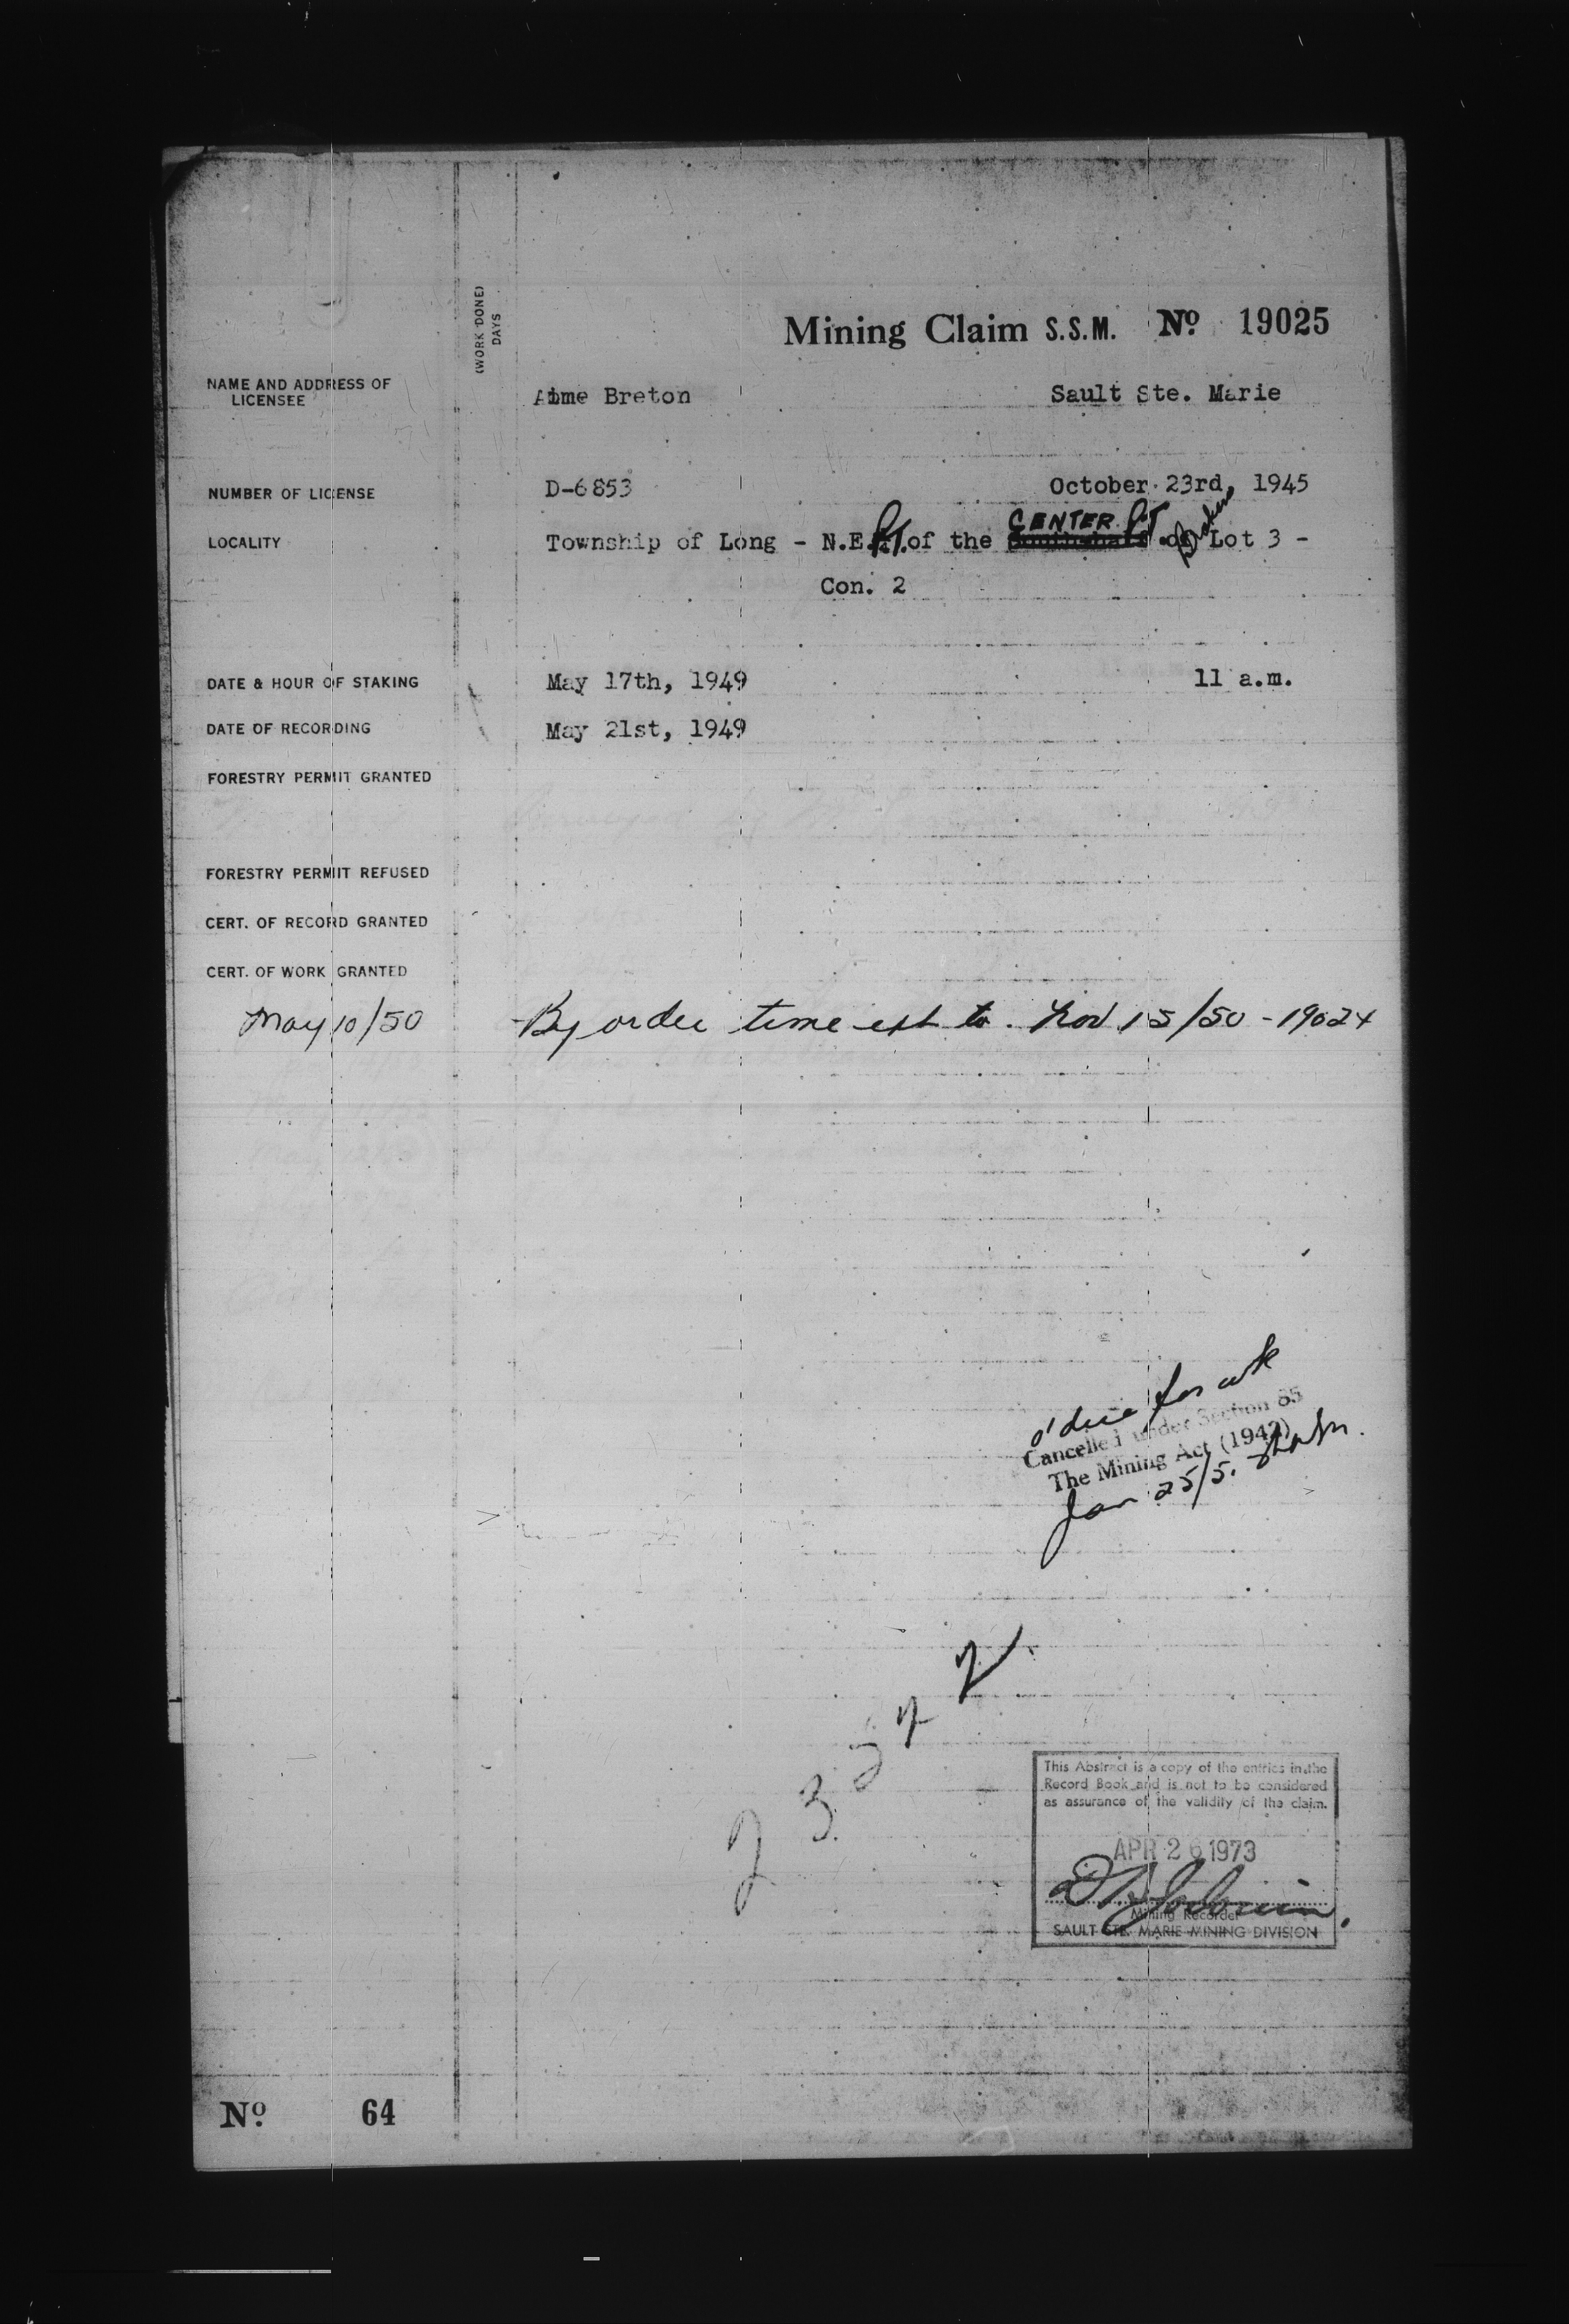 (WORK DONE)
DAYS
Mining Claim S.S.M. Nº 19025
NAME AND ADDRESS OF
LICENSEE
Aime Breton Sault Ste. Marie
NUMBER OF LICENSE D-6853 October 23rd, 1945
LOCALITY Township of Long - N.E. PT. of the CENTER PT of Lot 3 -
Con. 2
DATE & HOUR OF STAKING May 17th, 1949 11 a.m.
DATE OF RECORDING May 21st, 1949
FORESTRY PERMIT GRANTED
FORESTRY PERMIT REFUSED
CERT. OF RECORD GRANTED
CERT. OF WORK GRANTED
May 10/50 By order time ext to Nov 15/50 - 19024
Cancelled under Section 85
The Mining Act (1942)
Jan 25/5
This Abstract is a copy of the entries in the
Record Book and is not to be considered
as assurance of the validity of the claim.
APR 26 1973
Mining Recorder
SAULT STE. MARIE MINING DIVISION
Nº 64